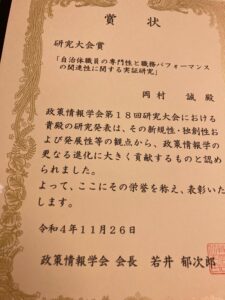 賞状
研究大会賞
「自治体職員の専門性と職務パフォーマンス
の関連性に関する実証研究」
岡村 誠 殿
政策情報学会第18回研究大会における
貴殿の研究発表は、その新規性・独創性お
よび発展性等の観点から、政策情報学の
更なる進化に大きく貢献するものと認め
られました。
よって、ここにその栄誉を称え、表彰いた
します。
令和4年11月26日
政策情報学会 会長 若井 郁次郎